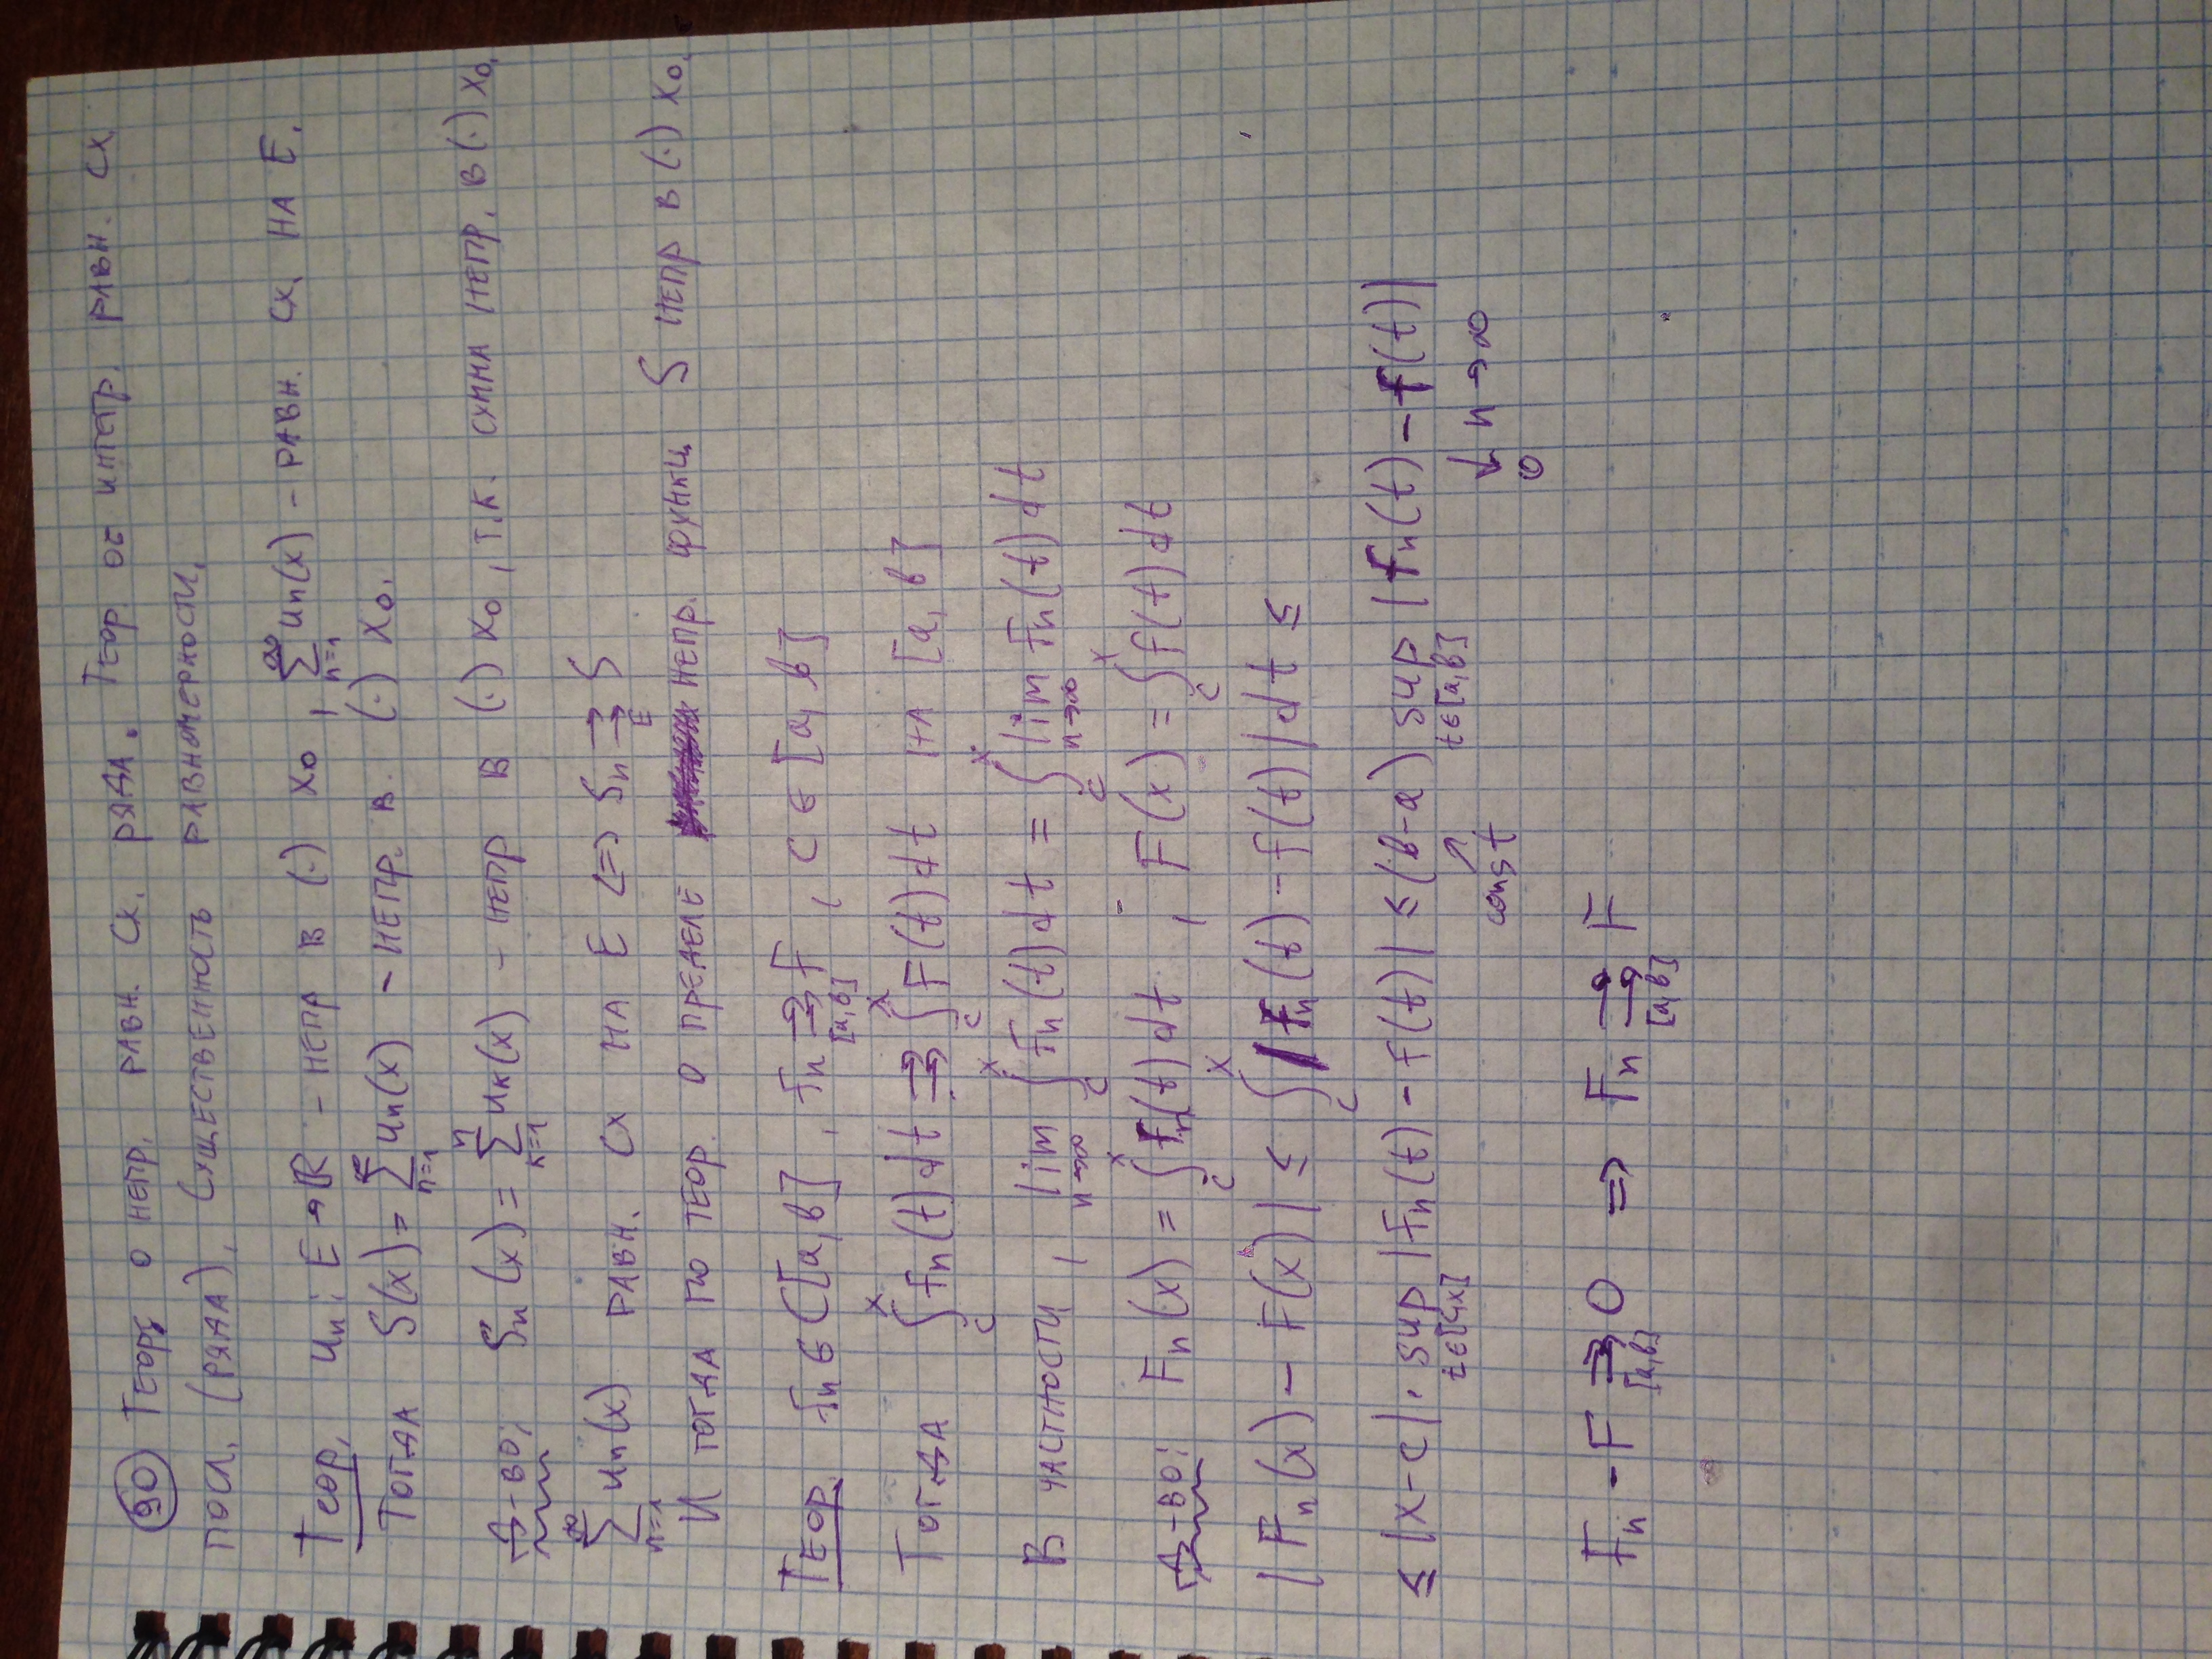 90 Теор. о непр. равн. сх. ряда. Теор об интегр. равн. сх.
посл. (ряда), Существенность равномерности.
Теор. uₙ: E → ℝ – непр в (·) x₀, ∑_{n=1}^{∞} uₙ(x) – равн. сх. на E.
Тогда S(x) = ∑_{n=1}^{∞} uₙ(x) – непр. в. (·) x₀.
Д-во: Sₙ(x) = ∑_{k=1}^{n} uₖ(x) – непр в (·) x₀, т.к. сумма непр. в (·) x₀.
∑_{n=1}^{∞} uₙ(x) равн. сх на E ⇔ Sₙ ⇉_{E} S
И тогда по теор. о пределе непр. функц S непр в (·) x₀.
Теор. fₙ ∈ C[a,b], fₙ ⇉_{[a,b]} F, c ∈ [a,b]
Тогда ∫_{c}^{x} fₙ(t)dt ⇉ ∫_{c}^{x} F(t)dt на [a,b]
В частности, lim_{n→∞} ∫_{c}^{x} fₙ(t)dt = ∫_{c}^{x} lim_{n→∞} fₙ(t)dt
Д-во: Fₙ(x) = ∫_{c}^{x} fₙ(t)dt, F(x) = ∫_{c}^{x} f(t)dt
|Fₙ(x) – F(x)| ≤ ∫_{c}^{x} |fₙ(t) – f(t)|dt ≤
≤ |x–c| · sup_{t∈[c,x]} |fₙ(t) – f(t)| ≤ (b–a) sup_{t∈[a,b]} |fₙ(t) – f(t)|
↗ const ↓ n→∞
0
Fₙ – F ⇉_{[a,b]} 0 ⇒ Fₙ ⇉_{[a,b]} F